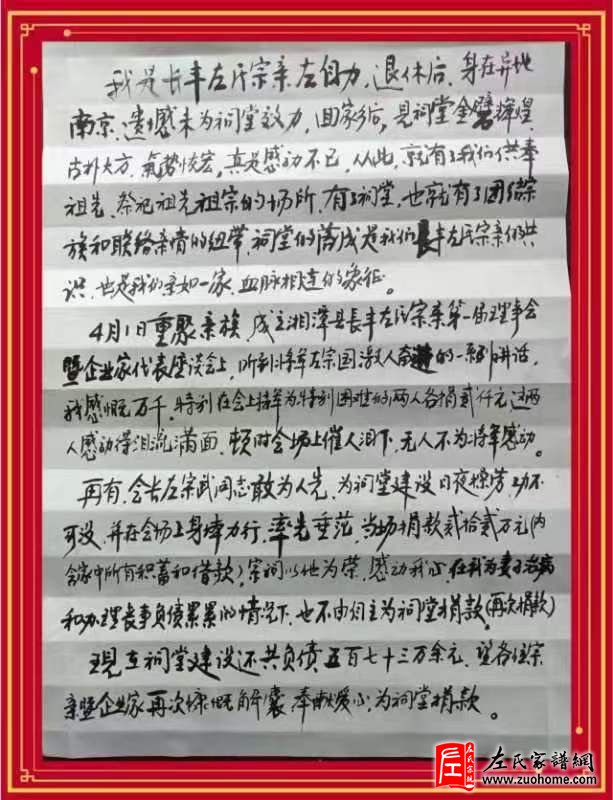 我是长丰左氏宗亲左自力，退休后，身在异地
南京，遗憾未为祠堂效力，回家后，见祠堂金碧辉煌
古朴大方，气势恢宏，真是感动不已，从此，就有了我们供奉
祖先、祭祀祖先祖宗的场所，有了祠堂，也就有了团结宗
族和联络亲情的纽带，祠堂的落成是我们长丰左氏宗亲的共
识，也是我们亲如一家、血脉相连的象征。
4月1日重聚亲族，成立湘潭县长丰左氏宗亲第一届理事会
暨企业家代表座谈会上，听到将军左宗国激人奋进的一系列讲话，
我感慨万千，特别在会上将军为特别困难的两人各捐贰仟元，这两
人感动得泪流满面，顿时会场上催人泪下，无人不为将军感动。
再有，会长左宗武同志敢为人先，为祠堂建设日夜操劳，功不
可没，并在会场上身体力行，率先垂范，当场捐款贰拾贰万元(内
含家中所有积蓄和借款)，宗祠以他为荣，感动我心，在我为妻子治病
和办理丧事负债累累的情况下，也不由自主为祠堂捐款(再次捐款)
现在祠堂建设还共负债五百七十三万余元，望各位宗
亲暨企业家再次慷慨解囊，奉献爱心，为祠堂捐款。
左氏家谱網
www.zuohome.com